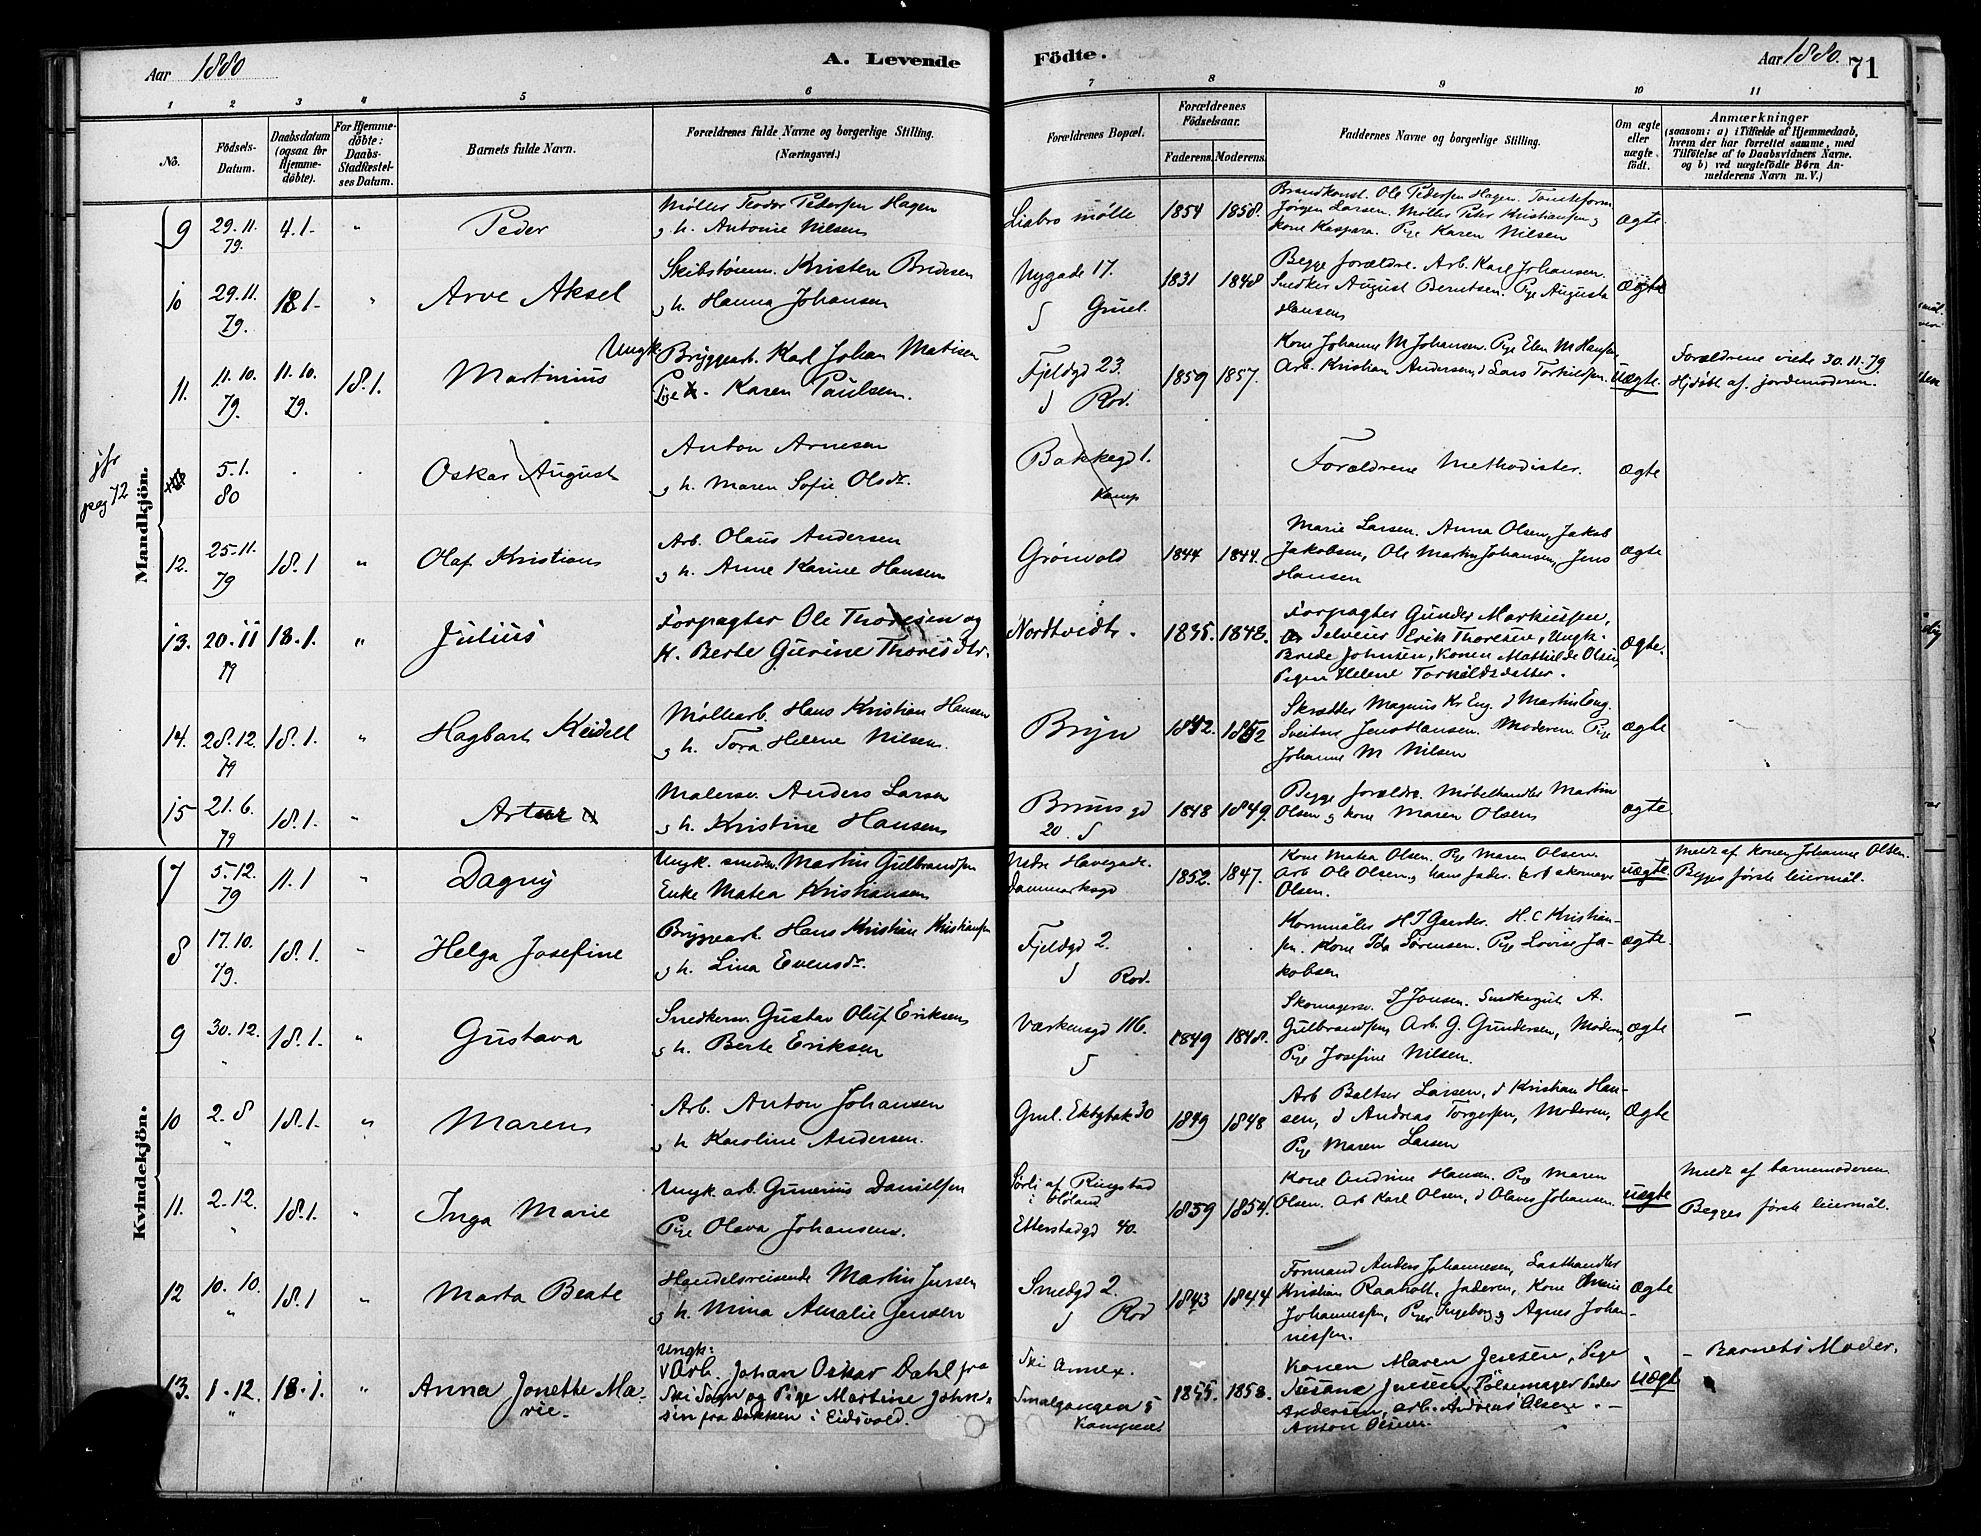 Aar 1880
A. Levende
Födte.
Aar 1880. 71
1 2 3 4 5 6 7 8 9 10 11
No.
Födsels-
Datum.
Daabsdatum
(ogsaa for
Hjemme-
döbte).
For Hjemme-
döbte:
Daabs-
Stadfæstel-
ses Datum.
Barnets fulde Navn.
Forældrenes fulde Navne og borgerlige Stilling.
(Næringsvei.)
Forældrenes Bopæl.
Forældrenes
Födselsaar.
Faderens. Moderens.
Faddernes Navne og borgerlige Stilling.
Om ægte
eller
uægte
födt.
Anmærkninger
(saasom: a) i Tilfælde af Hjemmedaab,
hvem der har forrettet samme, med
Tilföielse af to Daabsvidners Navne.
og b) ved uægtefödte Börn An-
melderens Navn m. V.)
Mandkjön.
9 29.11. 79. 4.1- " Peder
Møller Teodor Pedersen Hagen
og h. Antonie Nilsen
Liabro mølle 1854 1858.
Ole Pedersen Hagen.
Jørgen Larsen. Møller Peter Kristiansen og
kone Kaspara. Pige Karen Nilsen
ægte
10 29.11. 79. 18.1- " Arve Aksel
Skibstømm. Kristen Bredesen
og h. Hanna Johansen
Nygade 17.
1831 1848
Begge forældre. Arb. Karl Johansen.
Snedker August Berntsen. Pige Augusta
Hansen
ægte
11. 11.10. 79. 11.10. 79. 18.1. Martinius
Ungk. Bryggearb. Karl Johan Matisen
Pige Karen Paulsen.
Fjeldgd 23.
Rod.
1859 1857.
Kone Johanne M Johansen. Pige Elen M Hansen
Arb. Kristian Andersen, d Lars Torkilsen.
uægte.
Forældrene viede 30.11.79
Hjdøbt af jordemoderen.
jfr
pag 72
5.1. 80 . . Oskar August
Anton Arnesen
og h. Maren Sofie Olsdr.
Bakkegd 1.
Kamp
Forældrene Methodister.
ægte
12. 25.11. 79 18.1 " Olaf Kristian
Arb. Olaus Andersen
og h. Anne Karine Hansen
Grønvold 1844 1844.
Marie Larsen. Anna Olsen, Jakob
Jakobsen, Ole Martin Johansen, Jens
Hansen
ægte
13. 20.11 79 18.1. " Julius
Forpagter Ole Thoresen og
H. Berte Gurine Thoresdtr.
Nordtvedt. 1835. 1843.
Forpagter Gunder Markussen,
Selveier Erik Thoresen, Ungk.
Brede Johnsen, Konen Mathilde Olsen,
Pigen Helene Torkildsdatter.
ægte.
14. 28.12. 79 18.1. " Hagbart Keidell
Møllearb. Hans Kristian Hansen
og h. Tora Helene Nilsen.
Bryn 1842. 1852
Skrædder Magnus Kr Eng. d Martin Eng.
Sveitser Jens Hansen. Moderen. Pige
Johanne M Nilsen
ægte
15 21.6. 79 18.1. " Artur
Malersv. Anders Larsen
og h. Kristine Hansen
Bruns gd
20.
1848 1849.
Begge forældre. Møbelhandler Martin
Olsen og kone Maren Olsen
ægte.
Kvindekjön.
7 5.12. 79 11.1 " Dagny
Ungk. smedsv. Martin Gulbrandsen
Enke Matea Kristiansen
Nedre Havegade.
Danmarksgd
1852. 1847.
Kone Matea Olsen. Pige Maren Olsen
Arb Ole Olsen og hans fader. Arb skomager
Olsen.
uægte.
Meldt af konen Johanne Olsen.
Begges første leiermål.
8 17.10. 79. 18.1. " Helga Josefine
Bryggearb. Hans Kristian Kristiansen
og h. Lina Evensdr.
Fjeldgd 2.
Rod.
. .
Kornmåler H J Gaarder. H. C Kristian-
sen. Kone Ida Sørensen. Pige Lovise Ja-
kobsen
ægte.
9 30.12. " 18.1. " Gustava
Snedkersv. Gustav Oluf Eriksen
og h. Berte Eriksen
Værkensgd 116.
1849 1848.
Skomagersv. J Jonsen. Snedkergut A.
Gulbrandsen, Arb. G. Gundersen, Moderen,
Pige Josefine Nilsen.
ægte
10 2.8 " 18.1. " Maren
Arb. Anton Johansen
og h Karoline Andersen.
Gml. Ekebgbak 30 1849 1848
Arb Baltser Larsen, d Kristian Han-
sen, d Andreas Torgersen, Moderen,
Pige Maren Larsen
ægte
11. 2.12. " 18.1. " Inga Marie
Ungk arb. Gunerius Danielsen
Pige Olava Johansen.
Sørli af Ringstad
i Høland
Etterstadgd 40.
1859 1854.
Kone Andrine Hansen. Pige Maren
Olsen. Arb Karl Olsen, d Olaves Johansen.
uægte
Meldt af barnemoderen
Begges første leiermål.
12 10.10. " 18.1 " Marta Beate
Handelsreisende Martin Jensen
og h. Mina Amalie Jensen
Smedgd 2.
Rod
1843 1844
Formand Anders Johannesen, Lasthandler
Kristian Raaholt, Faderen, Kone
Johannessen, Piger Ingeborg og Agnes Johan-
nessen.
ægte
13. 1.12. " 18.1. " Anna Jonette Ma-
rie.
Ungk:
Arb. Johan Oskar Dahl fra
Ski Sogn og Pige Martine John-
sen fra Dokken i Eidsvold.
Ski Annex.
Smalgangen 5
Kampen
1855. 1858.
Konen Maren Jensen, Pige
Susane Jensen, Pølsemager Peder
Andersen, arb. Andreas Olsen. -
Anton Olsen.
uægt
- Barnets Moder.